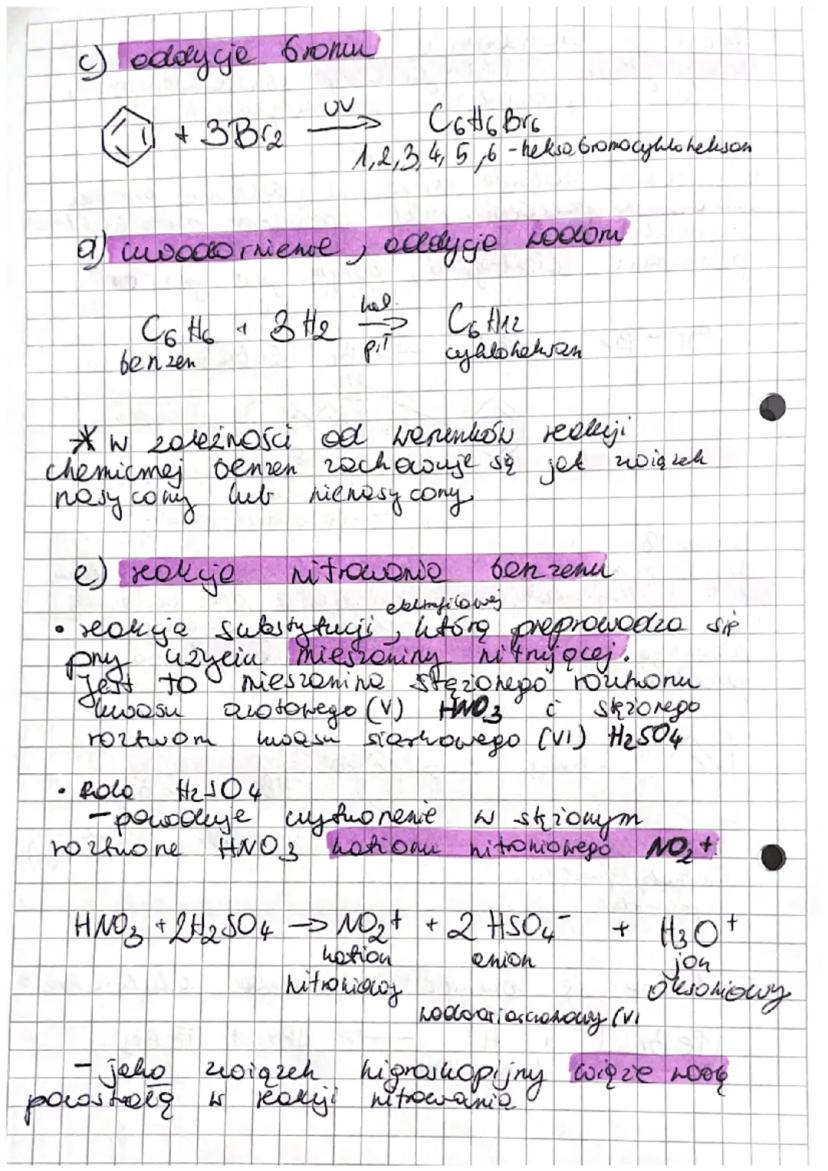 c) addycja bromu
+ 3Br₂ UV → C₆H₆Br₆
1,2,3,4,5,6-heksabromocykloheksan
d) uwodornienie, addycja wodoru
C₆H₆ + 3H₂ kat. p,T → C₆H₁₂
benzen cykloheksan
* w zależności od warunków reakcji
chemicznej benzen zachowuje się jak związek
nasycony lub nienasycony
e) reakcja nitrowania benzenu
elektrofilowej
• reakcja substytucji, którą przeprowadza się
przy użyciu mieszaniny nitrującej.
Jest to mieszanina stężonego roztworu
kwasu azotowego (V) HNO₃ i stężonego
roztworu kwasu siarkowego (VI) H₂SO₄
• Rola H₂SO₄
- powoduje wytworzenie w stężonym
roztworze HNO₃ kationu nitroniowego NO₂⁺
HNO₃ + 2H₂SO₄ → NO₂⁺ + 2HSO₄⁻ + H₃O⁺
kation anion jon
nitroniowy oksoniowy
wodorosiarczanowy (VI
- jako związek higroskopijny wiąże wodę
powstałą w reakcji nitrowania